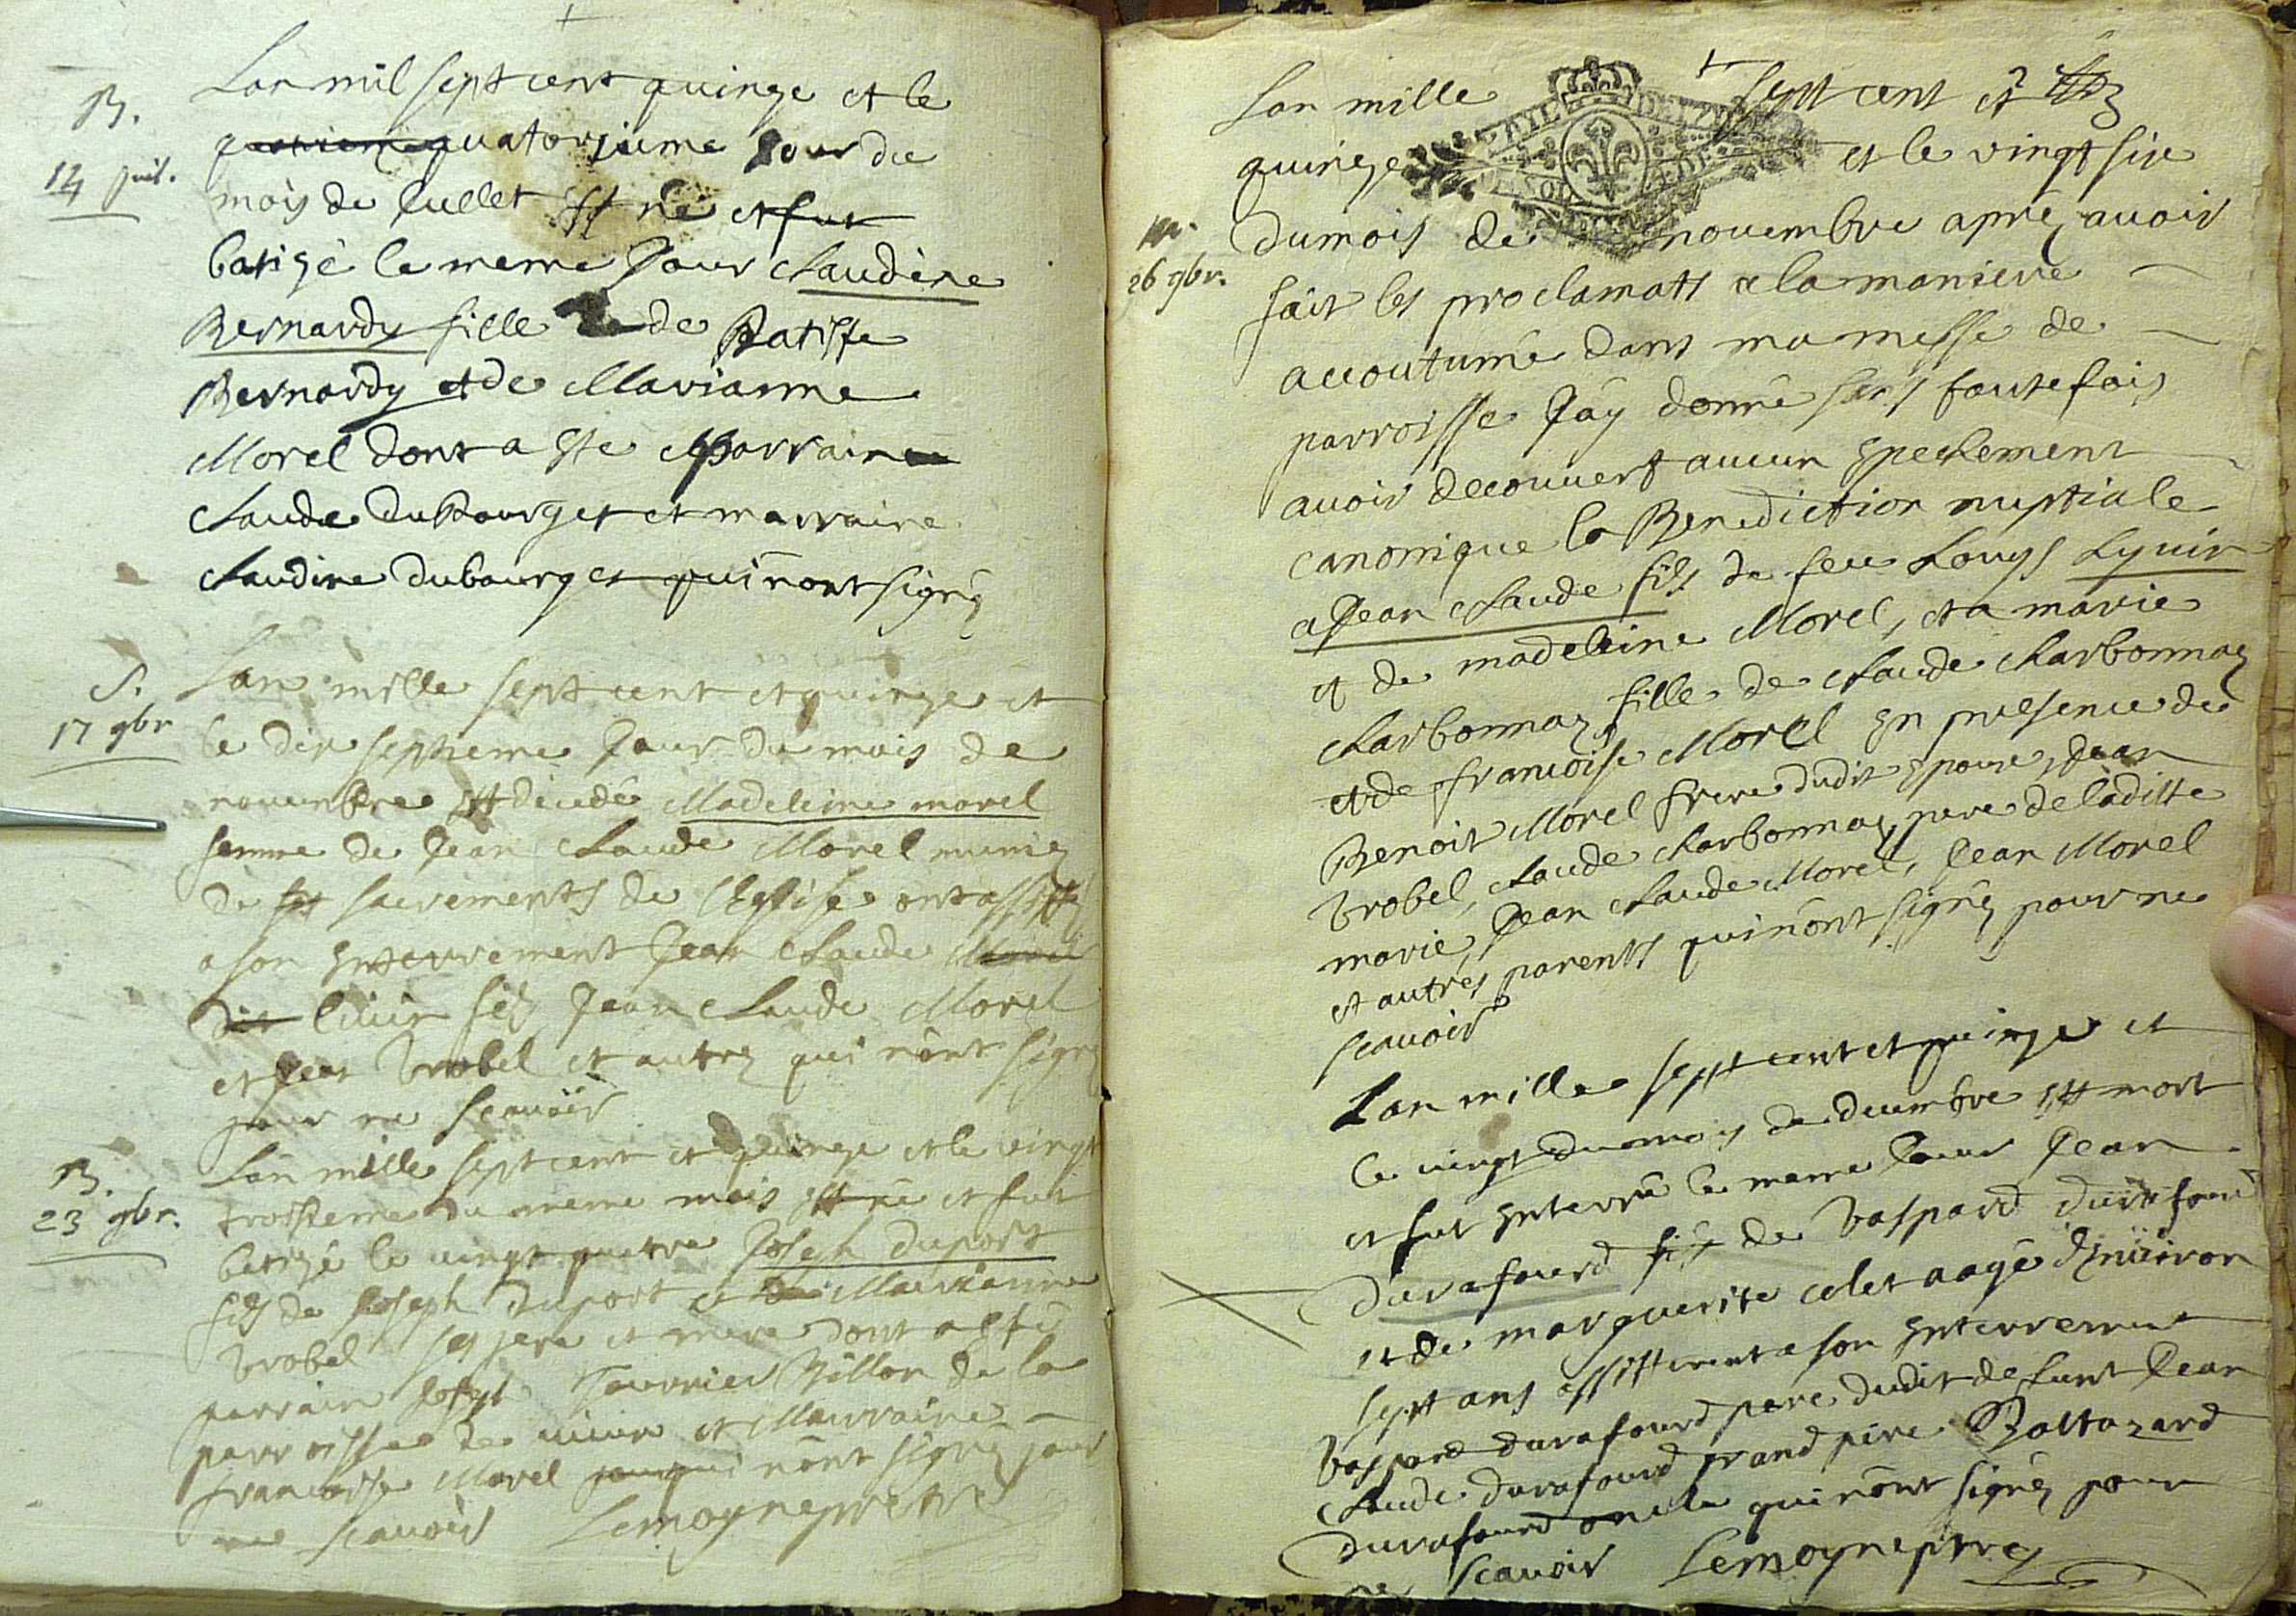 B.
14 juil.
Lan mil sept cent quinze et le
quatorzieme Jour du
mois de Jullet est né et fut
batisé le meme Jour Claudine
Bernardy fille de Batiste
Bernardy et de Marianne
Morel dont a esté parrain
Claude duBourget et marraine
Claudine dubourget qui nont signé
S.
17 9br
Lan mille sept cent et quinze et
le dix septieme Jour du mois de
novembre est décédé Madeleine morel
femme de Jean Claude Morel muniez
de ses sacrements de l'Eglise ont assisté
a son Enterrement Jean Claude Morel
dit liuir fils Jean Claude Morel
et Jean vrobel et autrez qui nont signé
pour ne scauoir
B.
23 9br.
Lan mille sept cent et quinze et le vingt
troisieme du meme mois est né et fut
batizé le vingt quatre Joseph duport
fils de Joseph duport et de Marianne
vrobel ses pere et mere dont a esté
parrain Joseph Billon de la
parroisse de et Marraine
francoise Morel qui nont signé pour
ne scauoir Lemoyne pretre
Lan mille sept cent et
quinze et le vingt six
M.
26 9br.
du mois de novembre aprez avoir
fait les proclamatt a la maniere
accoutumé dans ma messe de
parroisse J'ay donné sans toutefois
avoir decouvert aucun Epechement
canonique la Benediction nuptiale
a Jean Claude fils de feu Louys Lyuir
et de madeleine Morel, et a marie
Charbonnaz fille de Claude Charbonnaz
et de francoise Morel En presence de
Benoit Morel frere dudit Epoux, Jean
vrobel, Claude Charbonnaz pere de laditte
marie, Jean Claude Morel, Jean Morel
et autres parents qui nont signéz pour ne
scauoir
Lan mille sept cent et quinze et
le vingt du mois de decembre est mort
et fut Enterré le meme Jour Jean
durafourd fils de Gaspard durafourd
et de marguerite colet aagé d'Enuiron
sept ans assisterent a son Enterrement
Gaspard durafourd pere dudit defunt Jean
Claude durafourd grand pere Baltazard
durafourd oncle qui nont signéz pour
ne scauoir Lemoyne ptre